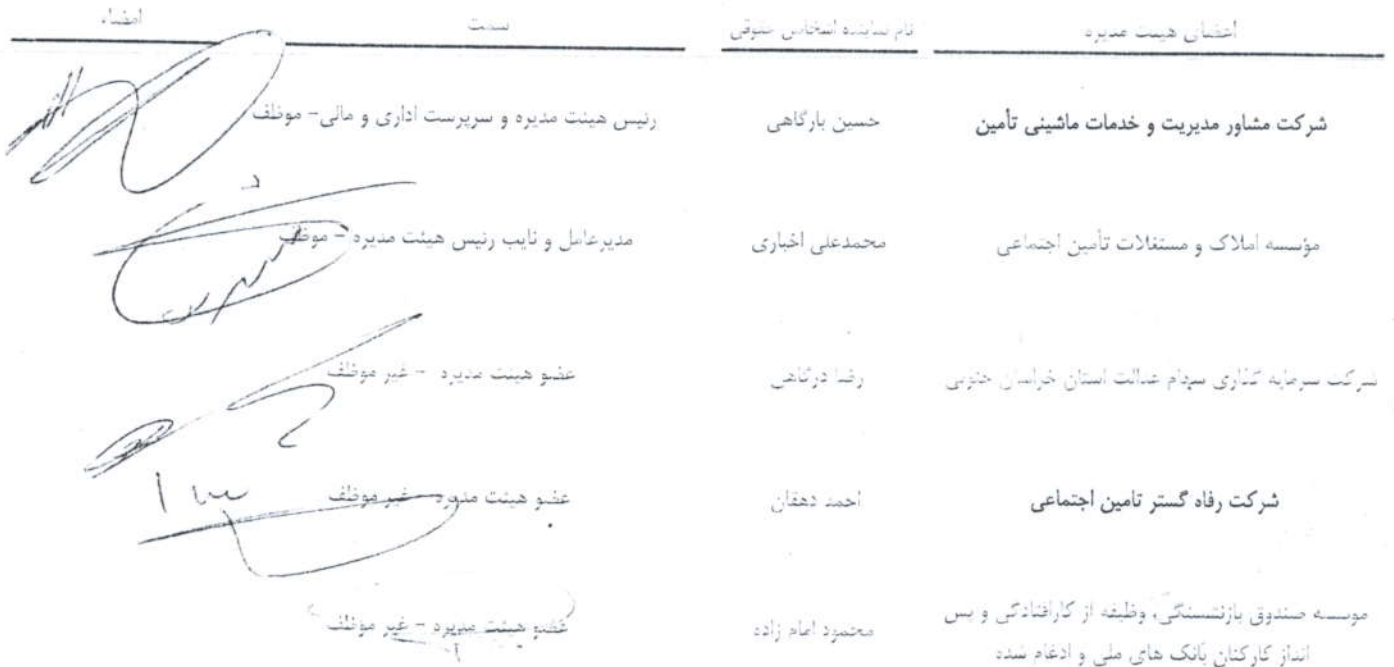 اعضای هیئت مدیره نام نماینده اشخاص حقوقی سمت امضاء
شرکت مشاور مدیریت و خدمات ماشینی تأمین حسین بارگاهی رئیس هیئت مدیره و سرپرست اداری و مالی- موظف
مؤسسه املاک و مستغلات تأمین اجتماعی محمدعلی اخباری مدیرعامل و نایب رئیس هیئت مدیره - موظف
شرکت سرمایه گذاری سهام عدالت استان خراسان جنوبی رضا درگاهی عضو هیئت مدیره - غیر موظف
شرکت رفاه گستر تامین اجتماعی احمد دهقان عضو هیئت مدیره - غیر موظف
موسسه صندوق بازنشستگی، وظیفه از کارافتادگی و پس محمود امام زاده عضو هیئت مدیره - غیر موظف
انداز کارکنان بانک های ملی و ادغام شده